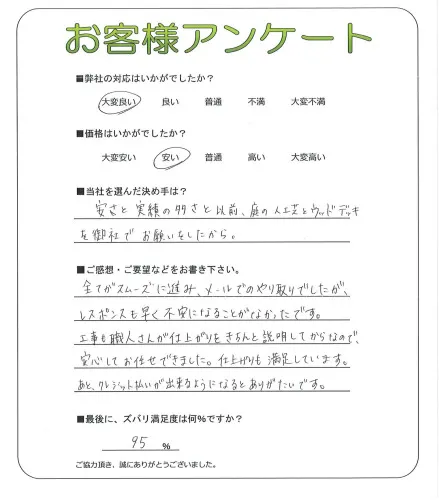 お客様アンケート
■弊社の対応はいかがでしたか?
大変良い 良い 普通 不満 大変不満
■価格はいかがでしたか?
大変安い 安い 普通 高い 大変高い
■当社を選んだ決め手は?
安さと実績の多さと以前、庭の人工芝とウッドデッキ
を御社でお願いをしたから。
■ご感想・ご要望などをお書き下さい。
全てがスムーズに進み、メールでのやり取りでしたが、
レスポンスも早く不安になることがなかったです。
工事も職人さんが仕上がりをきちんと説明してからなので、
安心してお任せできました。仕上がりも満足しています。
あと、クレジット払いが出来るようになるとありがたいです。
■最後に、ズバリ満足度は何%ですか?
95 %
ご協力頂き、誠にありがとうございました。